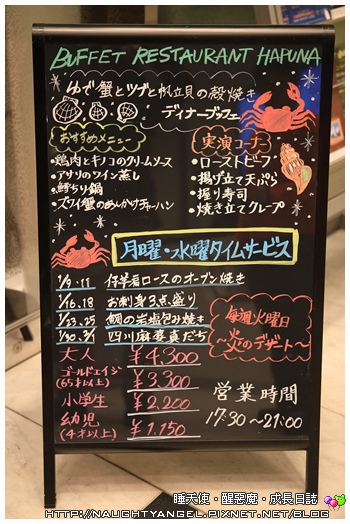 BUFFET RESTAURANT HAPUNA
ゆで蟹とツナと帆立貝の殻焼き
ディナーブッフェ
おすすめメニュー
・鶏肉とキノコのクリームソース
・アサリのワイン蒸し
・鱈ちり鍋
・ズワイ蟹のあんかけチャーハン
実演コーナー
・ローストビーフ
・揚げ立て天ぷら
・握り寿司
・焼き立てクレープ
月曜・水曜タイムサービス
1/9・11 仔羊肩ロースのオーブン焼き
1/16・18 お刺身3点盛り
1/23・25 鯛の岩塩包み焼き
1/30・2/1 四川麻婆真だち
毎週火曜日
～炎のデザート～
大人 ¥4,300
ゴールドエイジ
(65才以上) ¥3,300
小学生 ¥2,200
幼児
(4才以上) ¥1,150
営業時間
17:30~21:00
睡天使・醒惡魔・成長日誌
HTTP://NAUGHTYANGEL.PIXNET.NET/BLOG